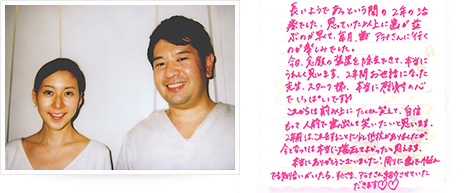 長いようであっという間の2年の治
療でした。思っていた以上に歯が並
ぶのが早くて、毎月、歯 アラナさんに行く
のが楽しみでした。
今日、念願の装置を除去できて、本当に
うれしく思います。2年間お世話になった
先生、スタッフ様、本当に感謝の心
でいっぱいです!!
これからは前以上にたくさん笑って、自信
もって人前で歯出して笑いたいと思います。
2年前はこえることに少し抵抗がありましたが、
今となっては本当に踏み出てよかったと思えます。
本当にありがとうございました! 周りに歯で悩ん
でる知り合いがいたら、すぐさま、アラナさん紹介させていた
だきます♡♡